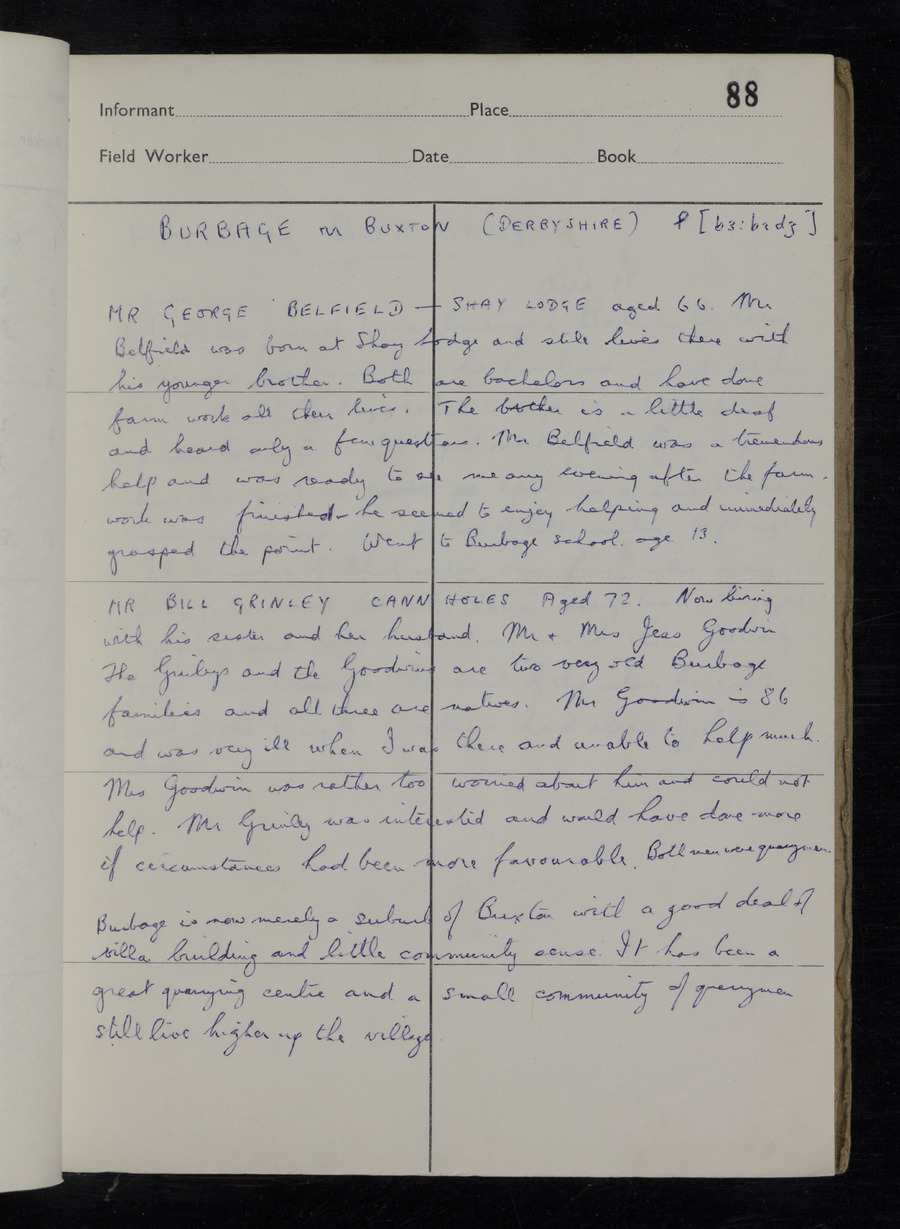 88
Informant Place
Field Worker Date Book
BURBAGE nr BUXTON (DERBYSHIRE) P [bɜ:bɪdʒ]
MR GEORGE BELFIELD — SHAY LODGE aged 66. Mr
Belfield was born at Shay Lodge and still lives there with
his younger brother. Both are bachelors and have done
farm work all their lives. The brother is a little deaf
and heard only a few questions. Mr Belfield was a tremendous
help and was ready to see me any evening after the farm-
work was finished – he seemed to enjoy helping and immediately
grasped the point. Went to Burbage school. age 13.
MR BILL GRINLEY CANN HOLES Aged 72. Now living
with his sister and her husband. Mr + Mrs Jess Goodwin
The Grinleys and the Goodwins are two very old Burbage
families and all three are natives. Mr Goodwin is 86
and was very ill when I was there and unable to help much.
Mrs Goodwin was rather too worried about him and could not
help. Mr Grinley was interested and would have done more
if circumstances had been more favourable. Both men were quarrymen.
Burbage is now merely a suburb of Buxton with a good deal of
villa building and little community sense. It has been a
great quarrying centre and a small community of quarrymen
still live higher up the village